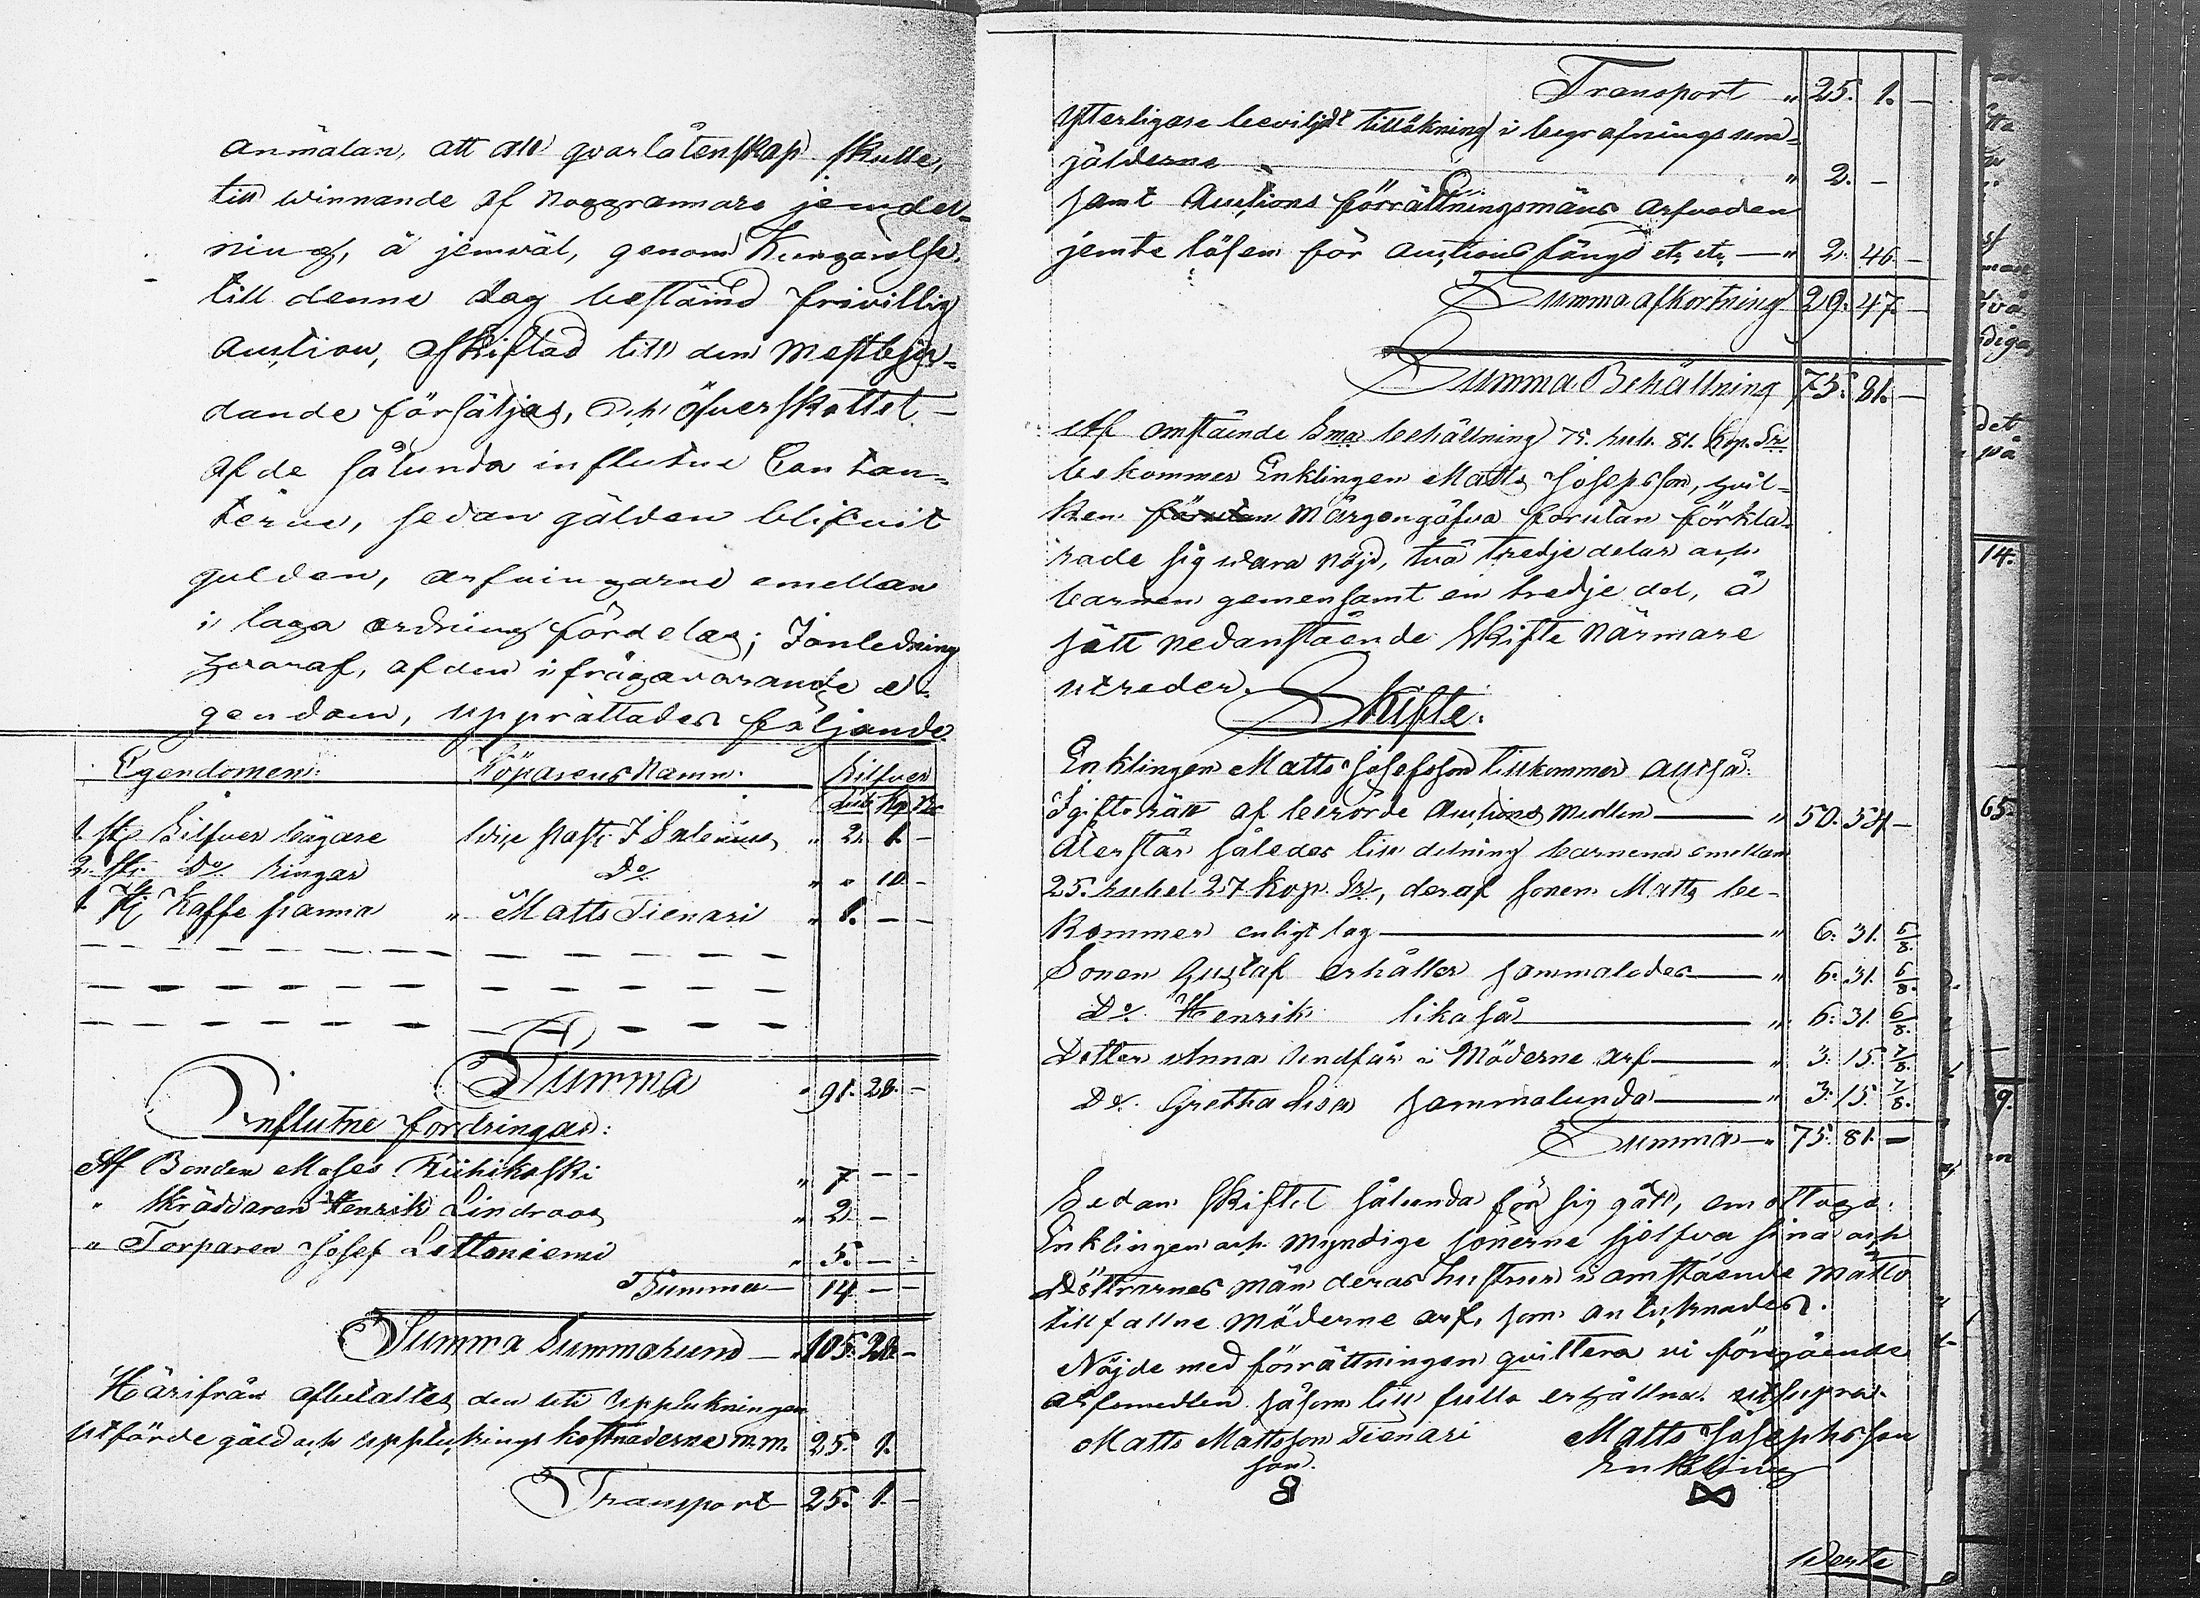 anmälan, att all qvarlåtenskap skulle,
till winnande af noggrannare jemdel-
ning, å jemväl, genom Kungörelse,
till denne dag bestämd frivillig
Auction, oskiftad till den mestbju-
dande försäljas, och öfverskottet
af de sålunda influtne Contan-
terne, sedan gälden blifvit
gulden, arfvingarne emellan
i laga ordning fördelas; I anledning
hvaraf, af den ifrågavarande e-
gendom, upprättades följande
Egendomen: Köparens Namn: Silfver
Rub. Kop.
1. st. Silfver bägare Vice Past. I Salenius " 2. 1. -
2. st. Do ringar Do " " 10 -
1. st. Kaffe panna " Matts Tienari " 1. - -
Summa " 91. 28. -
Influtne fordringar:
Af Bonden Moses Riihikoski " 7 - -
" Skräddaren Henrik Lindroos " 2. -
" Torparen Josef Lettoniemi " 5. - -
Summa 14 - -
Summa Summarum " 105. 28. -
Härifrån afbetaltes den uti uppteckningen
utförde gäld och upptecknings kostnaderne m.m. 25. 1.
Transport 25. 1. -
Transport " 25. 1. -
Ytterligare beviljadt tillökning i begrafnings um-
gälderne " 2. -
samt Auctions förrättningsmäns arfvoden
jemte lösen för auctions längd etc etc " 2. 46. -
Summa afkortning 29. 47. -
Summa Behållning 75. 81. -
Af omstående Sma behållning 75. rub. 81. Kop. Sr
bekommer Enklingen Matts Josepsson, hvil-
ken förutan Morgongåfva förutan förkla-
rade sig wara nöjd, två tredje delar och
barnen gemensamt en tredje del, å
sätt nedanstående Skifte närmare
utreder.
Skifte.
Enklingen Matts Josefsson tillkommer altså:
I giftorätt af berörde Auctions medlen " 50. 54 -
Återstår således till delning barnena emellan
25. rubel 27 Kop. Sr, deraf sonen Matts be-
kommer enligt lag " 6. 31. 6/8.
Sonen Gustaf erhåller sammaledes " 6. 31. 6/8.
Do Henrik likaså " 6. 31. 6/8.
Dotter Anna undfår i Möderne arf " 3. 15. 7/8.
Do Gretha Lisa sammalunda " 3. 15. 7/8.
Summa " 75. 81. -
Sedan skiftet sålunda för sig gått, emottogo
Enklingen och myndige sönerne sjelfva sina och
Döttrarnes män deras hustrur i omstående måtto
tillfallne möderne arf, som antecknades.
Nöjde med förrättningen qvittera vi föregående
arfsmedlen såsom till fullo erhållna. ut supra.
Matts Mattsson Tienari Matts Josephsson
son. Enkling
Verte